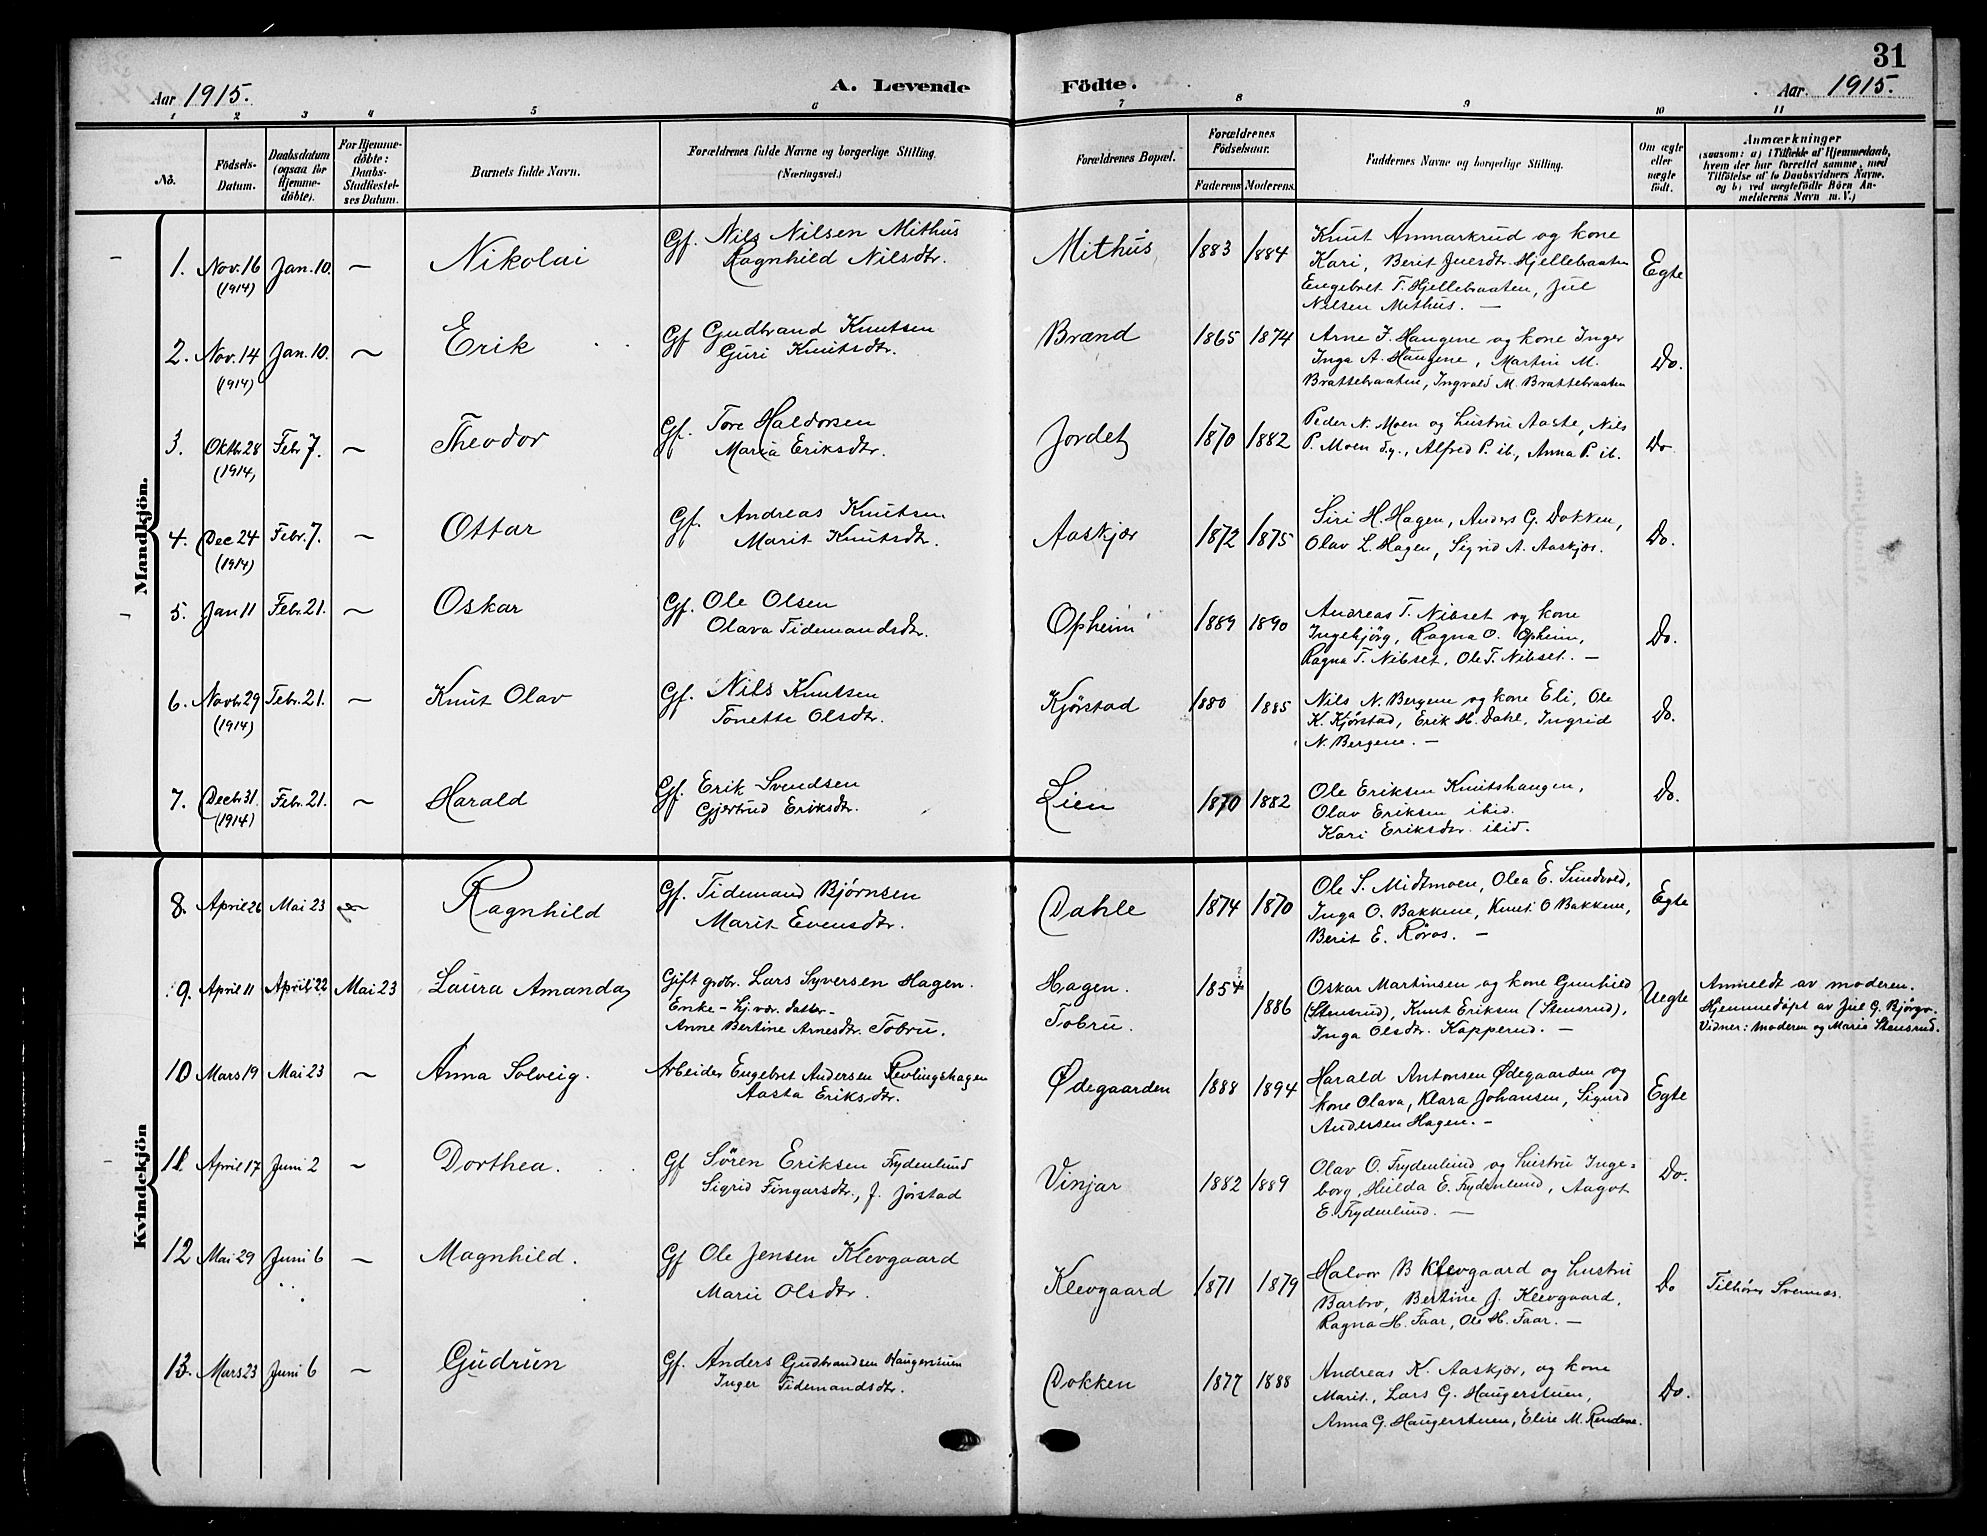 31
Aar 1915.
A. Levende
Födte.
Aar 1915.
1 2 3 4 5 6 7 8 9 10 11
No.
Födsels-
Datum.
Daabsdatum
(ogsaa for
Hjemme-
döbte).
For Hjemme-
döbte:
Daabs-
Stadfæstel-
ses Datum.
Barnets fulde Navn.
Forældrenes fulde Navne og borgerlige Stilling.
(Næringsvei.)
Forældrenes Bopæl.
Forældrenes
Födselsaar.
Faderens Moderens.
Faddernes Navne og borgerlige Stilling.
Om ægte
eller
uægte
født.
Anmærkninger
(saasom: a) i Tilfælde af Hjemmedaab,
hvem der har forrettet samme, med
Tilföielse af to Daabsvidners Navne.
og b) ved uægtefödte Börn An-
melderens Navn m. V.)
Mandkjön.
1. Nov. 16 (1914) Jan. 10. — Nikolai
Gf. Nils Nilsen Mithus
Ragnhild Nilsdtr.
Mithus 1883 1884
Knut Anmarkrud og kone
Kari, Berit Juesdtr. Hjellebraaten
Engebret T. Hjellebraaten, Jul
Nilsen Mithus. —
Egte
2. Nov. 14 (1914) Jan. 10. ~ Erik
Gf Gudbrand Knutsen
Guri Knutsdtr.
Brænd 1865 1874
Arne J. Haugene og kone Inger
Inga A. Haugene, Martin M.
Brattebraaten, Ingvald M. Brattebraaten
Do.
3. Oktbr 28 (1914) Febr 7. — Theodor
Gf. Tore Haldorsen
Maria Eriksdtr.
Jordet 1870 1882
Peder N. Moen og hustru Aaste, Nils
P. Moen d.y., Alfred P. ib., Anna P. ib.
Do
4. Dec 24 (1914) Febr. 7. — Ottar
Gf. Andreas Knutsen
Marit Knutsdtr.
Aaskjær 1872 1875
Siri H. Hagen, Anders G. Dokken,
Olav L. Hagen, Sigrid A. Aaskjær.
Do.
5. Jan 11 Febr. 21. — Oskar
Gf. Ole Olsen
Olava Tidemandsdtr.
Opheim 1889 1890
Andreas T. Nibset og kone
Ingebjörg, Ragna O. Opheim,
Ragna T. Nibset, Ole T. Nibset. —
Do.
6. Novbr 29 (1914) Febr. 21. — Knut Olav
Gf. Nils Knutsen
Tonette Olsdtr.
Kjørstad 1880 1885
Nils N. Bergene og kone Eli, Ole
K. Kjørstad, Erik H. Dahl, Ingrid
N. Bergene. —
Do.
7. Decbr 31. (1914) Febr. 21. ~ Harald
Gf. Erik Svendsen
Gjertrud Eriksdtr.
Lien 1870 1882
Ole Eriksen Knutshaugen,
Olav Eriksen ibid.
Kari Eriksdtr. ibid.
Do.
Kvindekjön
8. April 26 Mai 23 — Ragnhild
Gf. Tidemand Bjørnsen
Marit Evensdtr.
Dahle 1874 1870
Ole S. Midtmoen, Olea E. Sundvold,
Inga O. Bakkene, Knut O Bakkene,
Berit E. Røvas. —
Egte
9. April 11 April 22 Mai 23 Laura Amanda
Gift grdbr. Lars Syversen Hagen.
Enke – hj.vær. datter –
Anne Bertine Arnesdtr. Tobru.
Hagen.
Tobru.
1854 ? 1886
Oskar Martinsen og kone Gunhild
(Stensrud), Knut Eriksen (Stensrud),
Inga Olsdtr. Kapperud. —
Uegte
Anmeldt av moderen.
Hjemmedøpt av Jul G. Bjørgo.
Vidner: moderen og Marie Stensrud.
10 Mars 19 Mai 23 ~ Anna Solveig.
Arbeider Engebret Andersen Revlingshagen
Aasta Eriksdtr.
Ødegaarden 1888 1894
Harald Antonsen Ødegaarden og
kone Olava, Klara Johansen, Sigurd
Andersen Hagen. —
Egte
11 April 17 Juni 2 ~ Dorthea.
Gf Sören Eriksen Frydenlund
Sigrid Fingarsdtr., f. Jørstad
Vinjar 1882 1889
Olav O. Frydenlund og hustru Inge=
borg, Hilda E. Frydenlund, Aagot
E. Frydenlund. —
Do.
12 Mai 29 Juni 6 ~ Magnhild.
Gf Ole Jensen Klevgaard
Marie Olsdtr.
Klevgaard 1871 1879
Halvor B Klevgaard og hustru
Barbro, Bertine J. Klevgaard,
Ragna H. Faar, Ole H. Faar. —
Do
Tilhører Svennes.
13. Mars 23 Juni 6 ~ Gudrun
Gf. Anders Gudbrandsen Haugerstuen
Inger Tidemandsdtr.
Dokken 1877 1888
Andreas K. Aaskjær, og kone
Marit, Lars G. Haugerstuen,
Anna G. Haugerstuen, Elise M. Rendene.
Do.